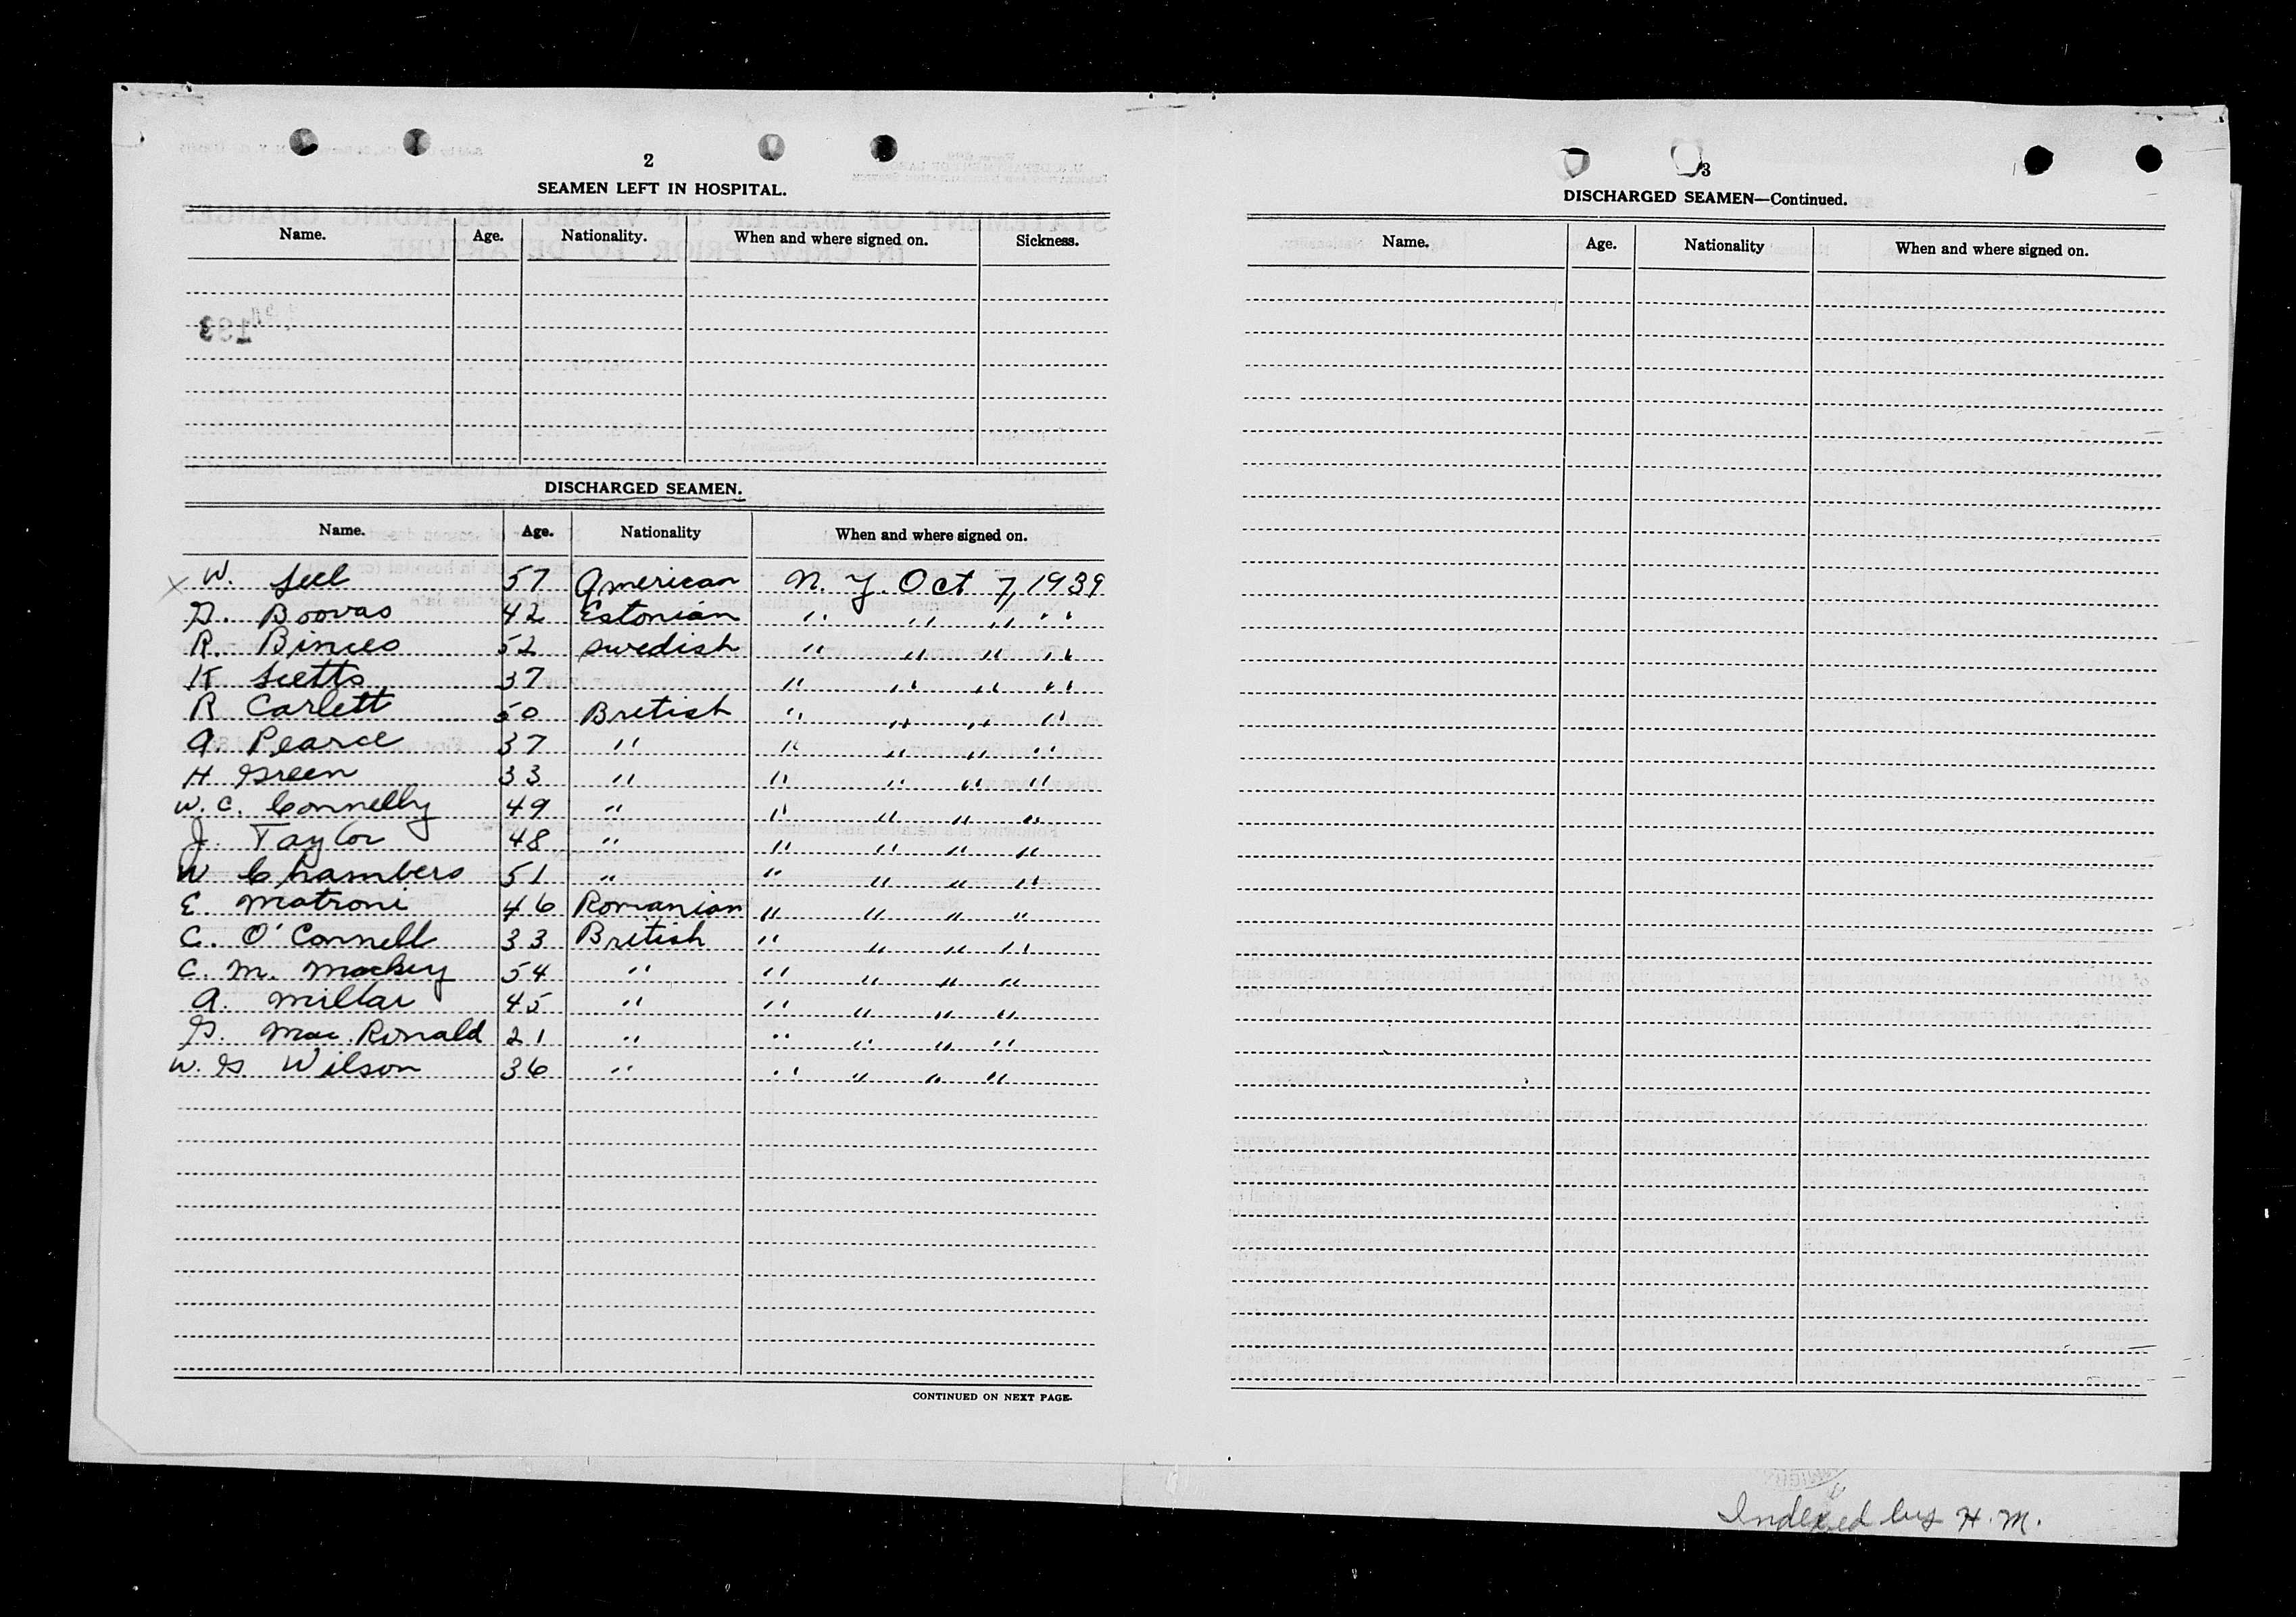 2
SEAMEN LEFT IN HOSPITAL.
Name. Age. Nationality. When and where signed on. Sickness.
DISCHARGED SEAMEN.
Name. Age. Nationality When and where signed on.
X W. 57 American N. Y. Oct 7, 1939
G. Boovas 42 Estonian " " " "
R. 52 Swedish " " " "
K 37 " " " "
R Carlett 50 British " " " "
A. Pearce 37 " " " " "
H Green 33 " " " " "
W. C. Connelly 49 " " " " "
J. Taylor 48 " " " " "
W Chambers 51 " " " " "
E. Matroni 46 Romanian " " " "
C. O'Connell 33 British " " " "
C. M. Mackey 54 " " " " "
A. Millar 45 " " " " "
G. Mac Ronald 21 " " " " "
W. G. Wilson 36 " " " " "
CONTINUED ON NEXT PAGE.
3
DISCHARGED SEAMEN—Continued.
Name. Age. Nationality When and where signed on.
Indexed by H. M.